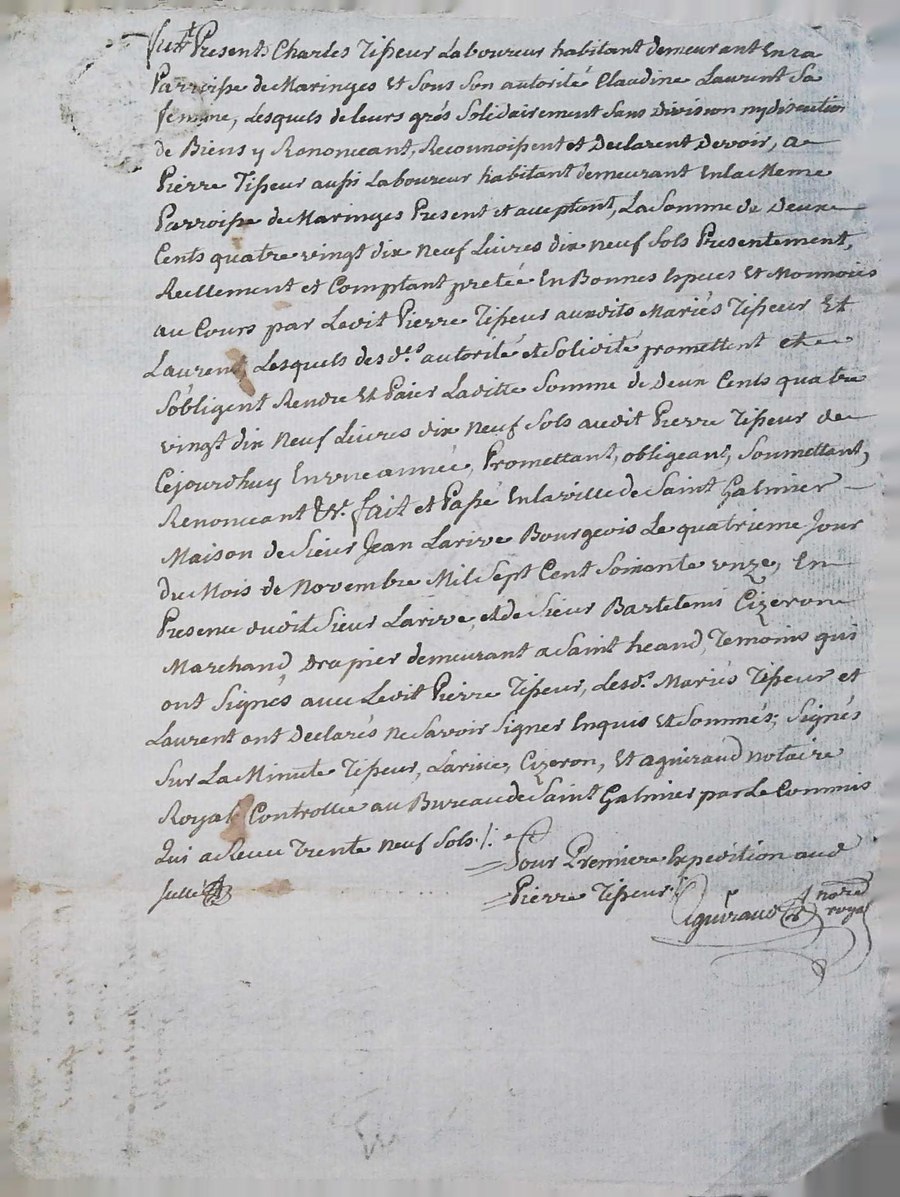 fut Present Charles Tisseur Laboureur habitant demeurant En La
Parroisse de Maringes Et Sous Son autorité Claudine Laurent Sa
femme, Lesquels de leurs grés Solidairement Sans Division ny discution
de Biens y Renonceant, Reconnoissent et Declarent Devoir, a
Pierre Tisseur aussi Laboureur habitant demeurant En la Meme
Parroisse de Maringes Present et acceptant, La Somme de Deux
Cents quatre vingt dix neuf Livres dix neuf Sols Presentement,
Reellement et Comptant pretée En Bonnes Especes Et Monnoies
au Cours par Ledit Pierre Tisseur auxdits Mariés Tisseur Et
Laurent, Lesquels desd.s autorité et Solidité promettent et
S'obligent Rendre Et Paier Laditte Somme de Deux Cents quatre
vingt dix Neuf Livres dix neuf Sols audit Pierre Tisseur de
Cejourdhuy En une année, Promettant, obligeant, Soumettant,
Renonceant &c. fait et Passé En la ville de Saint Galmier
Maison de Sieur Jean Larive Bourgeois Le quatrieme Jour
du Mois de Novembre Mil Sept Cent Soixante unze, En
Presence dudit Sieur Larive, et de Sieur Bartelemi Cizeron
Marchand Drapier demeurant a Saint heand, Temoins qui
ont Signés avec Ledit Pierre Tisseur, Lesd.s Mariés Tisseur et
Laurent ont Declarés ne Savoir Signer Enquis Et Sommés; Signés
Sur La Minute Tisseur, Larive, Cizeron, Et aguiraud notaire
Royal Controllée au Bureau de Saint Galmier par Le Commis
qui a Receu Trente neuf Sols ./.
Pour Premiere Expedition aud
Scellé
Pierre Tisseur
Aguiraud nore
royal